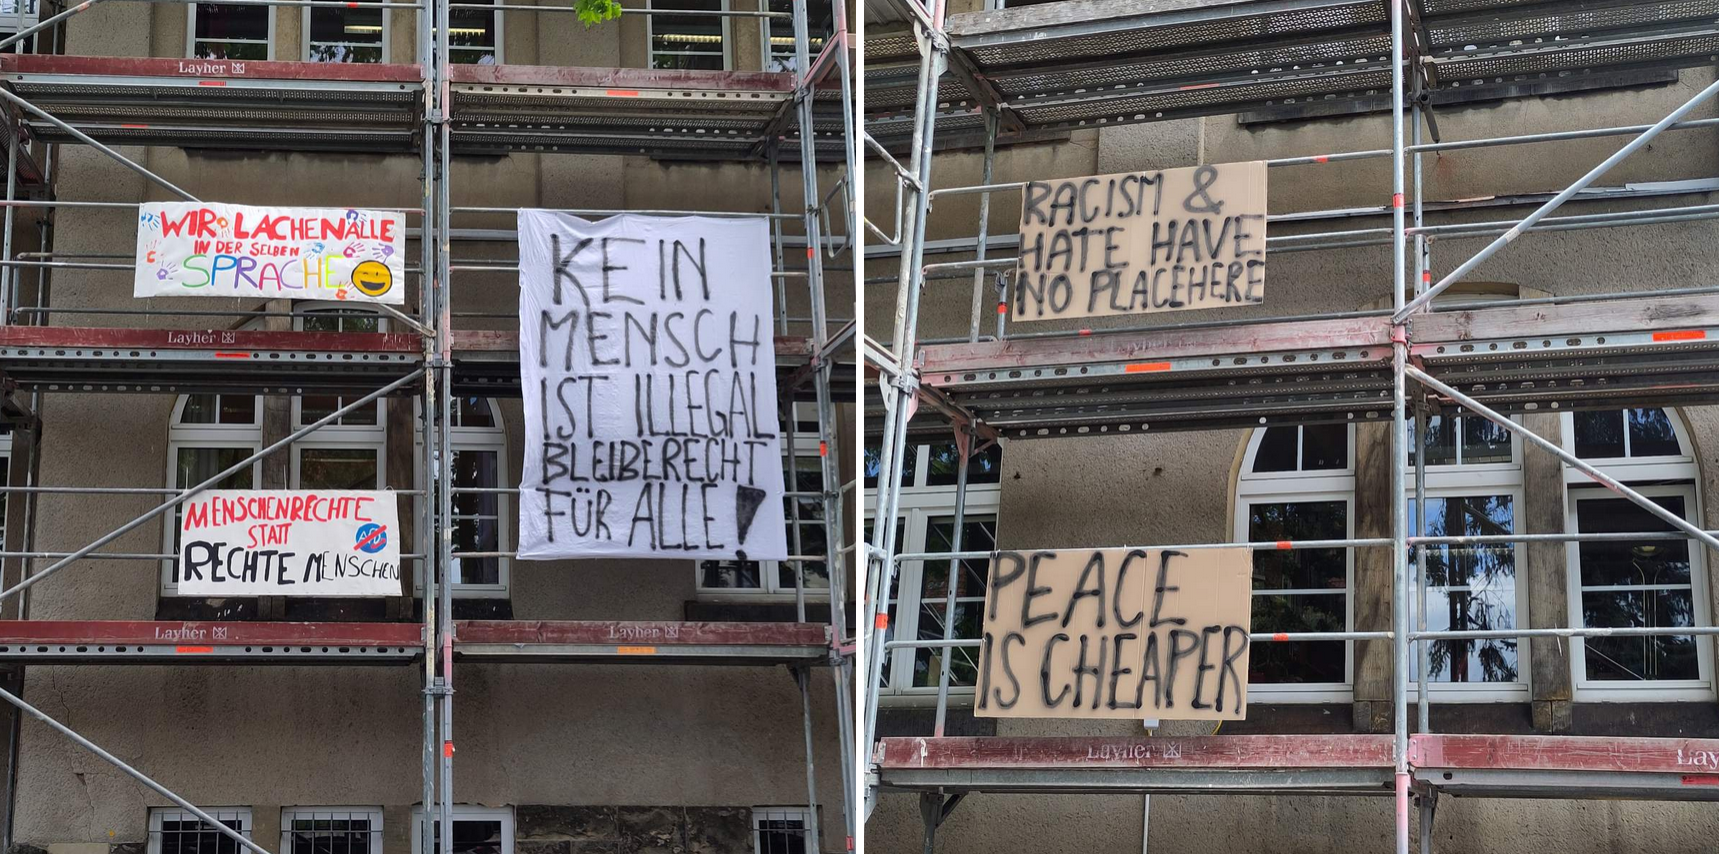 Layher
WIR LACHEN ALLE
IN DER SELBEN
SPRACHE
Layher
MENSCHENRECHTE
STATT
AfD
RECHTE MENSCHEN
Layher
KEIN
MENSCH
IST ILLEGAL
BLEIBERECHT
FÜR ALLE!
Layher
RACISM &
HATE HAVE
NO PLACE HERE
Layher
PEACE
IS CHEAPER
Layher
Lay